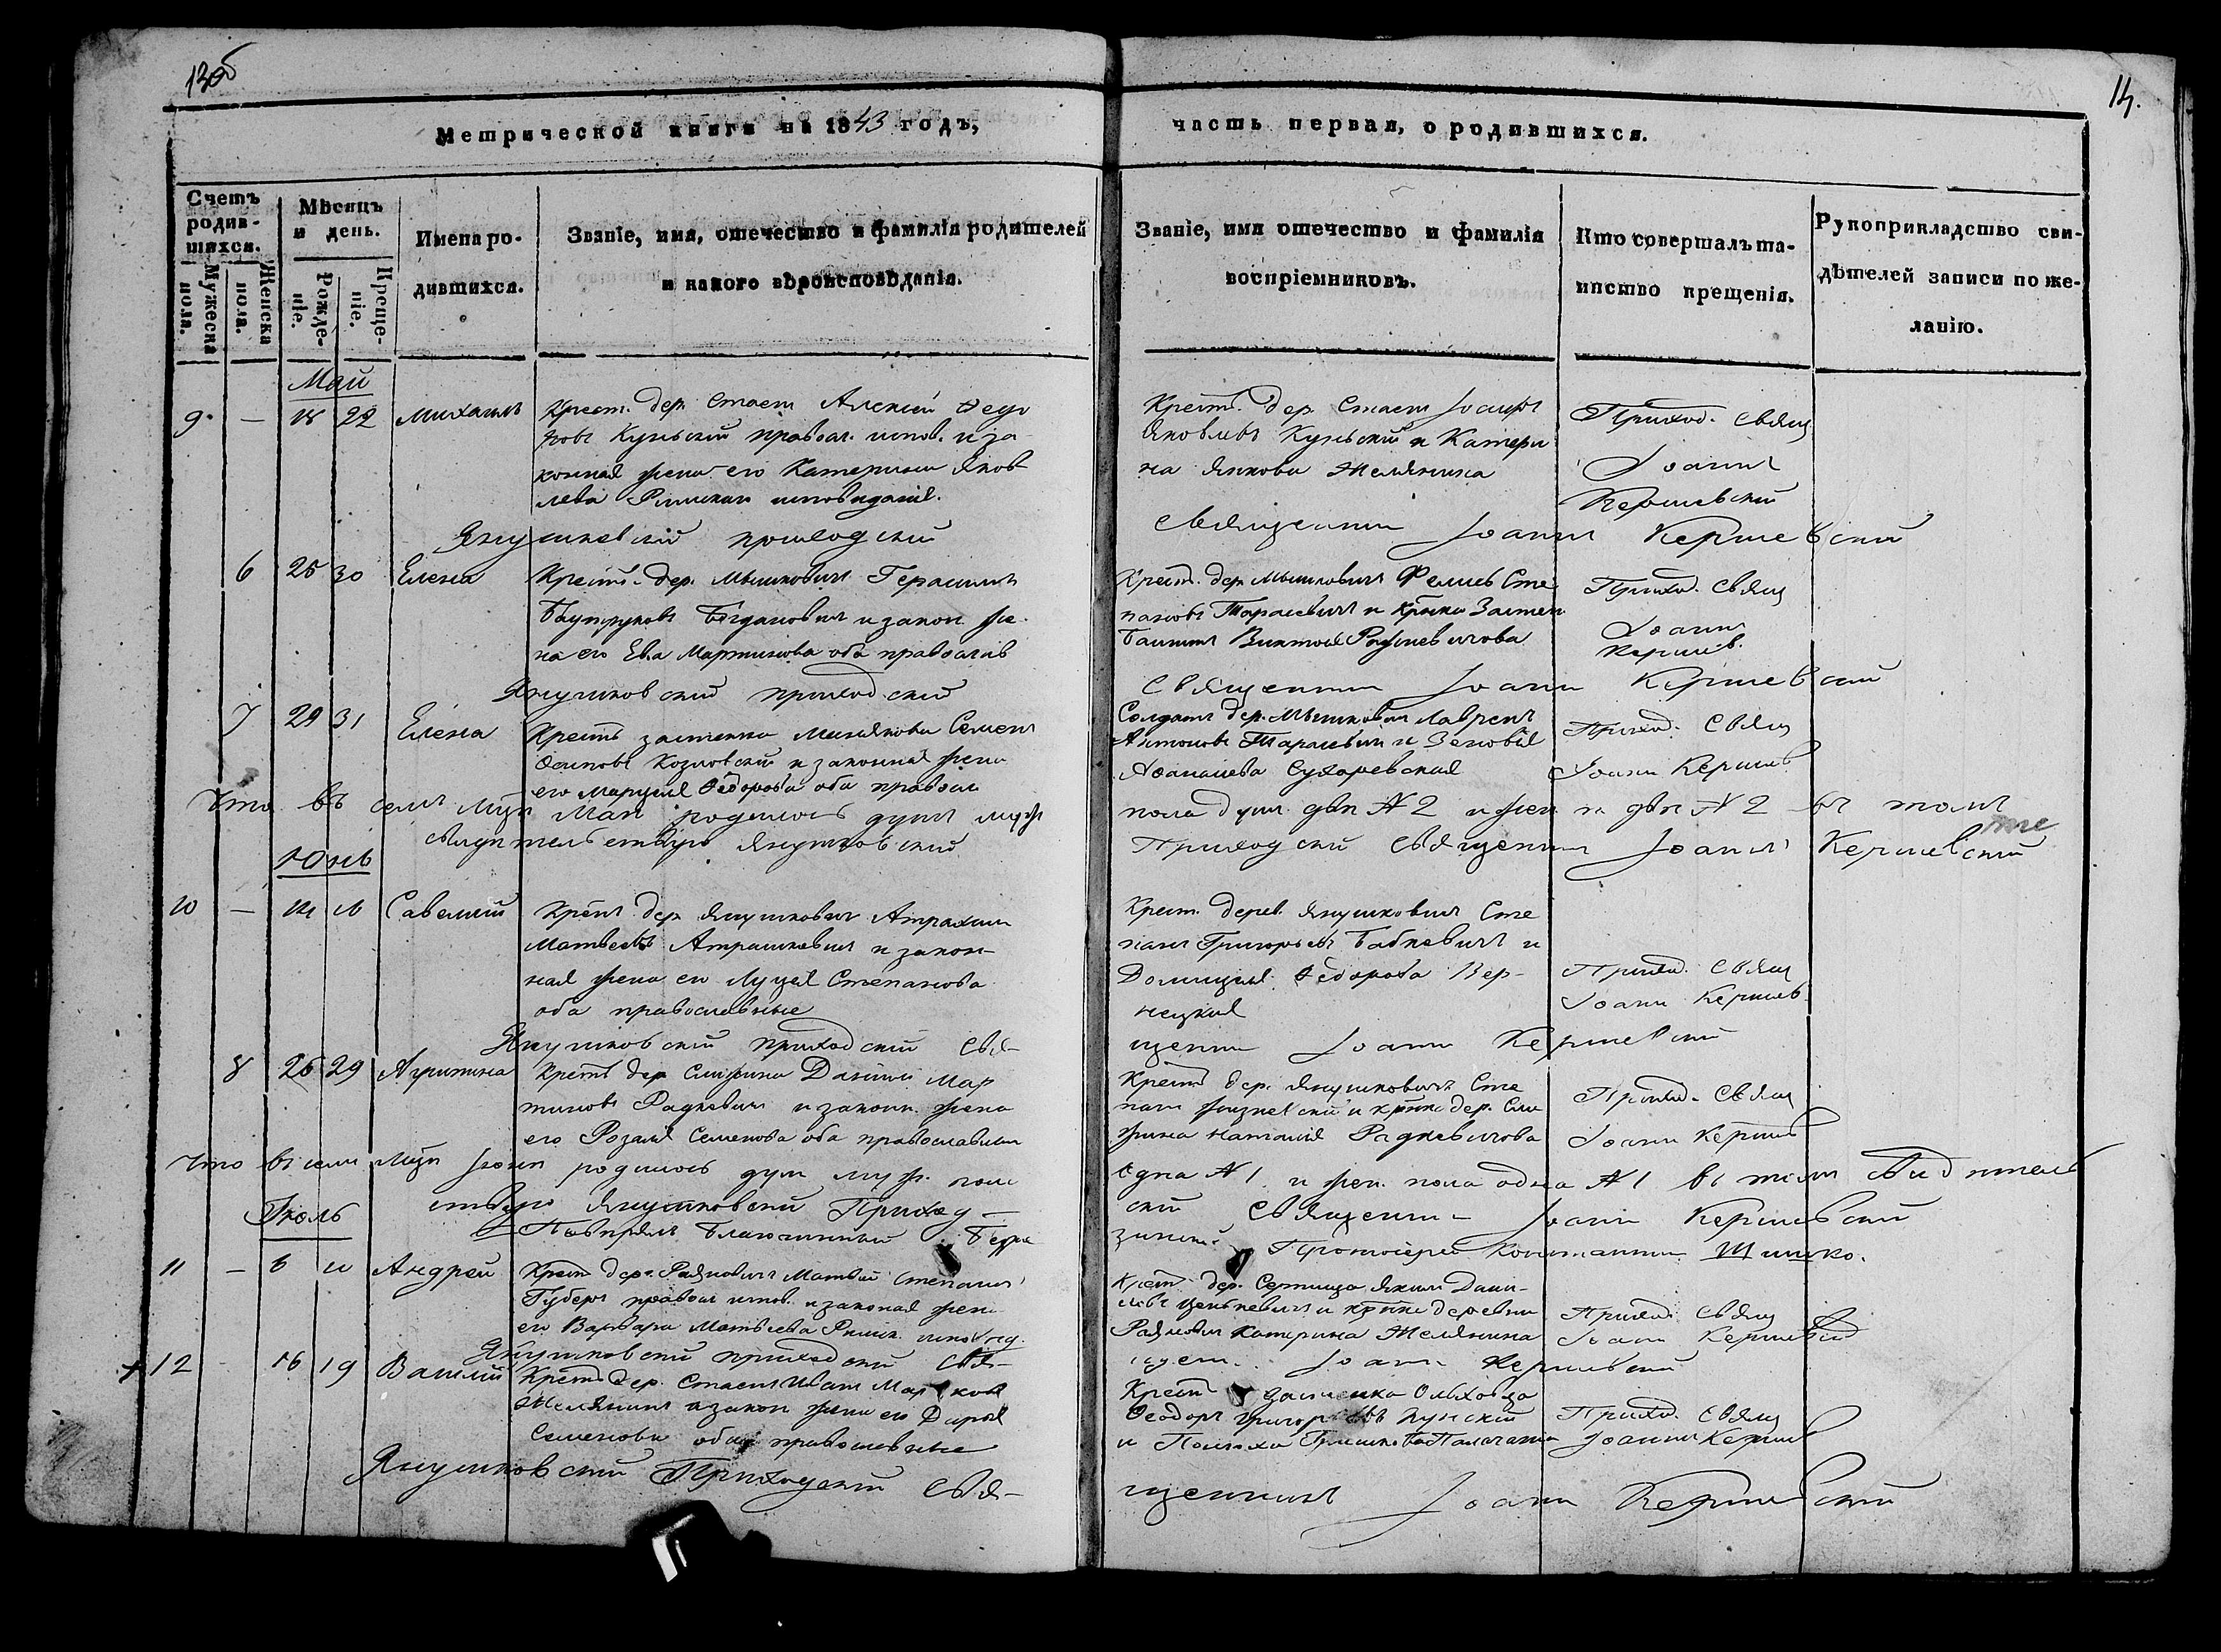 13об
14.
Метрической книги на 1843 годъ,
часть первая, о родившихся.
Счетъ родившихся.
Мужеска пола.
Женска пола.
Мѣсяцъ и день.
Рожденіе.
Крещеніе.
Имена родившихся.
Званіе, имя, отечество и фамилія родителей
и какого вѣроисповѣданія.
Званіе, имя отечество и фамилія
воспріемниковъ.
Кто совершалъ та-
инство крещенія.
Рукоприкладство сви-
дѣтелей записи по же-
ланію.
Май
9. — 18 22 Михаилъ
Крест. дер. Стаек Алексей Федо
ровъ Кунскій правосл. испов. и за
конная жена его Катерина Яков
лева Римскаго исповѣданія.
Крест. дер. Стаек Іосифъ
Яковлевъ Кунскій и Катери
на Янкова Желянина
Приход. Свящ
Іоаннъ
Кершевскій
Янушковскій приходскій
священник Іоаннъ Кершевскій
6 25 30 Елена
Крест. дер. Мышковичъ Герасимъ
Богдановичъ и закон. же-
на его Ева Мартинова оба православ
Крест. дер. Мышковичъ Сте
пановъ Тарасевичъ и
Приход. Свящ
Іоаннъ
Кершев.
Янушковскій приходскій
Священник Іоаннъ Кершевскій
7 29 31 Елена
Крест застенка Семенъ
Осиповъ Козловскій и законная жена
его Марцеля Федорова оба правосл
Солдатъ дер. Мышковичъ Лавренъ
Антоновъ Тарасевичъ и Зеновія
Афанасіева Сухаревская
Приход. Свящ
Іоанн Кершев
Что въ семъ Мцѣ Маѣ родилось душъ муж
пола душ двѣ № 2 и жен п двѣ № 2 въ томъ
свидетельствую Янушковскій
Приходскій Священник Іоаннъ Кершевскій
Юнь
10 — 16 Савелий
Крест дер Янушковичъ
Матвеевъ Атрашкевичъ и закон-
ная жена его Луція Степанова
оба православные
Крест. дерев. Янушковичъ Сте
панъ Григорьевъ Бабкевичъ и
Домицеля Федорова Вер-
нецкая
Приход. Свящ
Іоанн Кершев.
Янушковскій приходскій Свя-
щенник Іоанн Кершевскій
8 26 29 Агрипина
Крест дер Даніилъ Мар
тиновъ Радкевичъ и законн. жена
его Розалія Семенова оба православные
Крест дер. Янушковичъ Сте
пан и дер.
Наталія Радкевичова
Приход. Свящ
Іоанн Кершев
Что въ семъ Мцѣ Іюнѣ родилось душ муж. пола
одна № 1 и жен. пола одна № 1 въ томъ свидетель
ствую Янушковскій Приход-
скій Священник Іоанн Кершевскій
Іюль
Повѣрялъ Благочинный
Протоіерей Константин Шишко.
11 — 6 11 Андрей
Крест дер. Матвей Степанов
Губеръ правосл испов. и законая жена
его Варвара Матвеева Римск. исповед.
Крест дер. Яким Дани-
ловъ и деревни
Катерина Желянина
Приход. Свящ
Іоанн Кершевскій
Янушковскій приходскій Свя-
щен. Іоанн Кершевскій
+ 12 - 16 19 Василій
Крест дер. Стаек Иван Марков
Желянинъ и закон жена его Дарья
Семенова оба православные
Крест застенка Ольховца
Феодоръ Кунскій
и
Приход. Свящ
Іоанн Кершев
Янушковскій Приходскій Свя-
щенникъ Іоанн Кершевскій